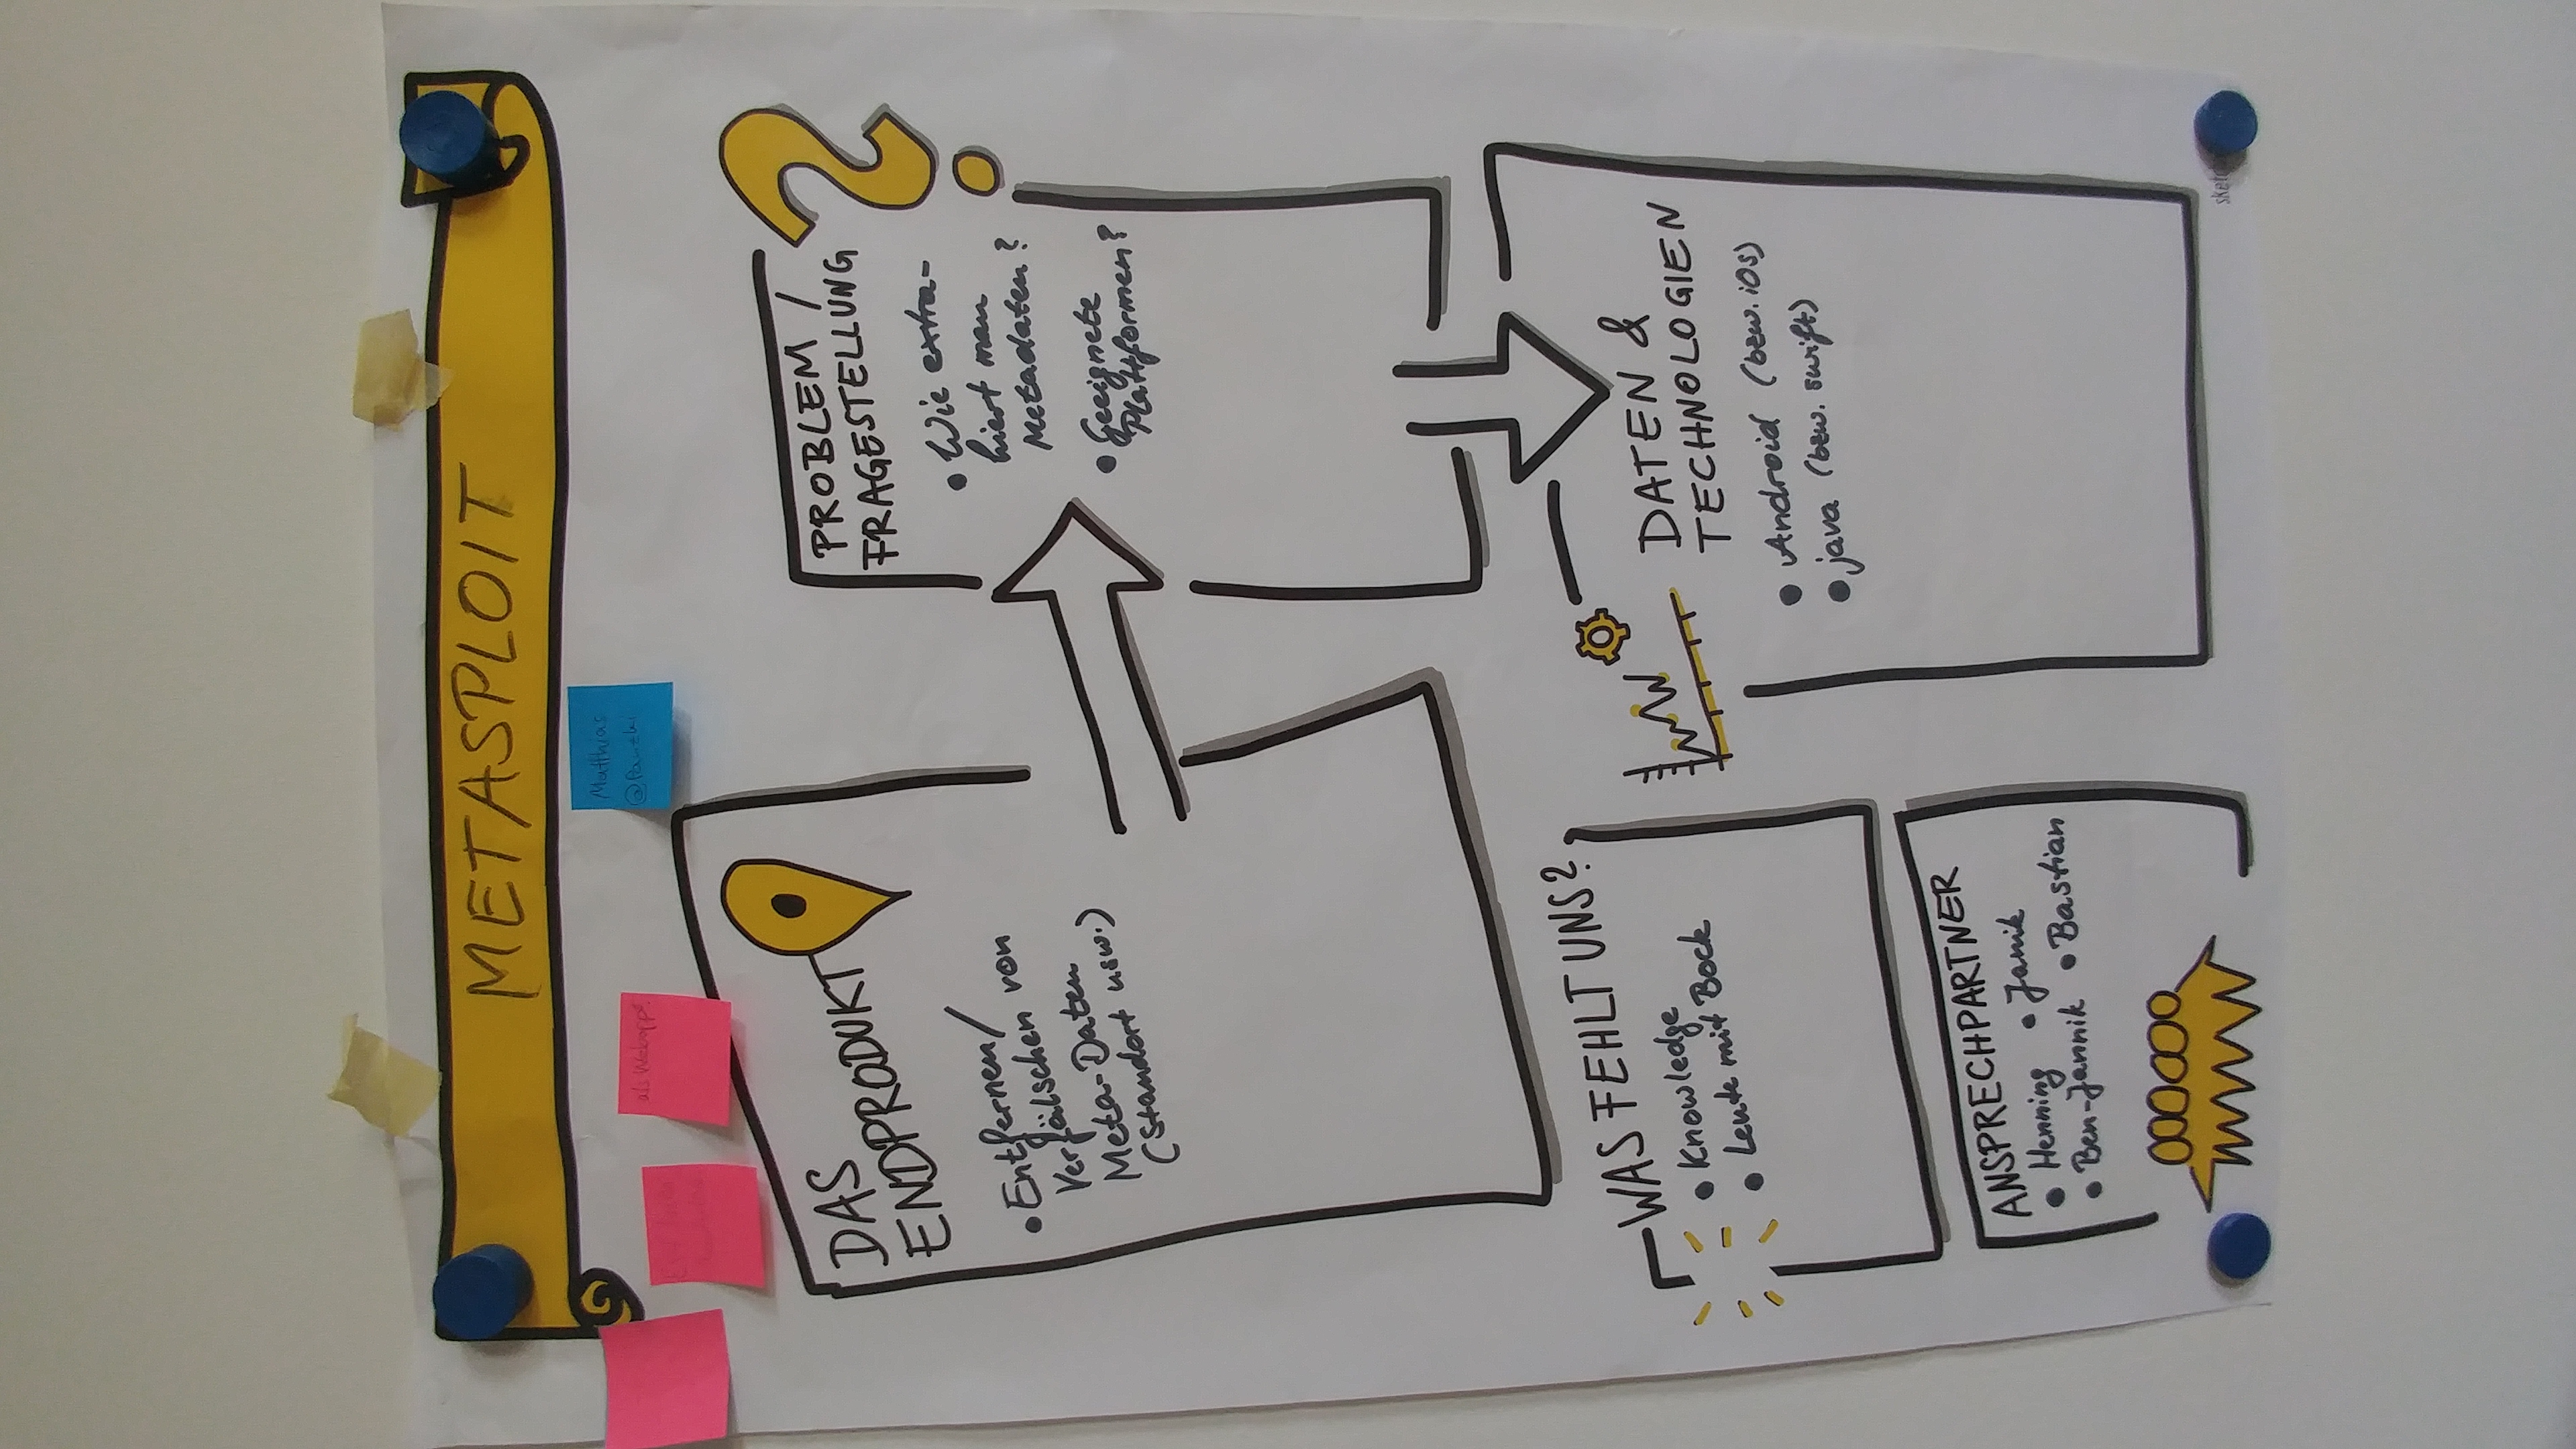 METASPLOIT
als Webapp?
Matthias
DAS
ENDPRODUKT
• Entfernen/
Verfälschen von
Meta-Daten
(Standort usw.)
PROBLEM /
FRAGESTELLUNG
• Wie extra-
hiert man
Metadaten?
• Geeignete
Plattformen?
WAS FEHLT UNS?
• Knowledge
• Leute mit Bock
DATEN &
TECHNOLOGIEN
• Android (bzw. iOS)
• java (bzw. swift)
ANSPRECHPARTNER
• Henning • Janik
• Ben-Jannik • Bastian